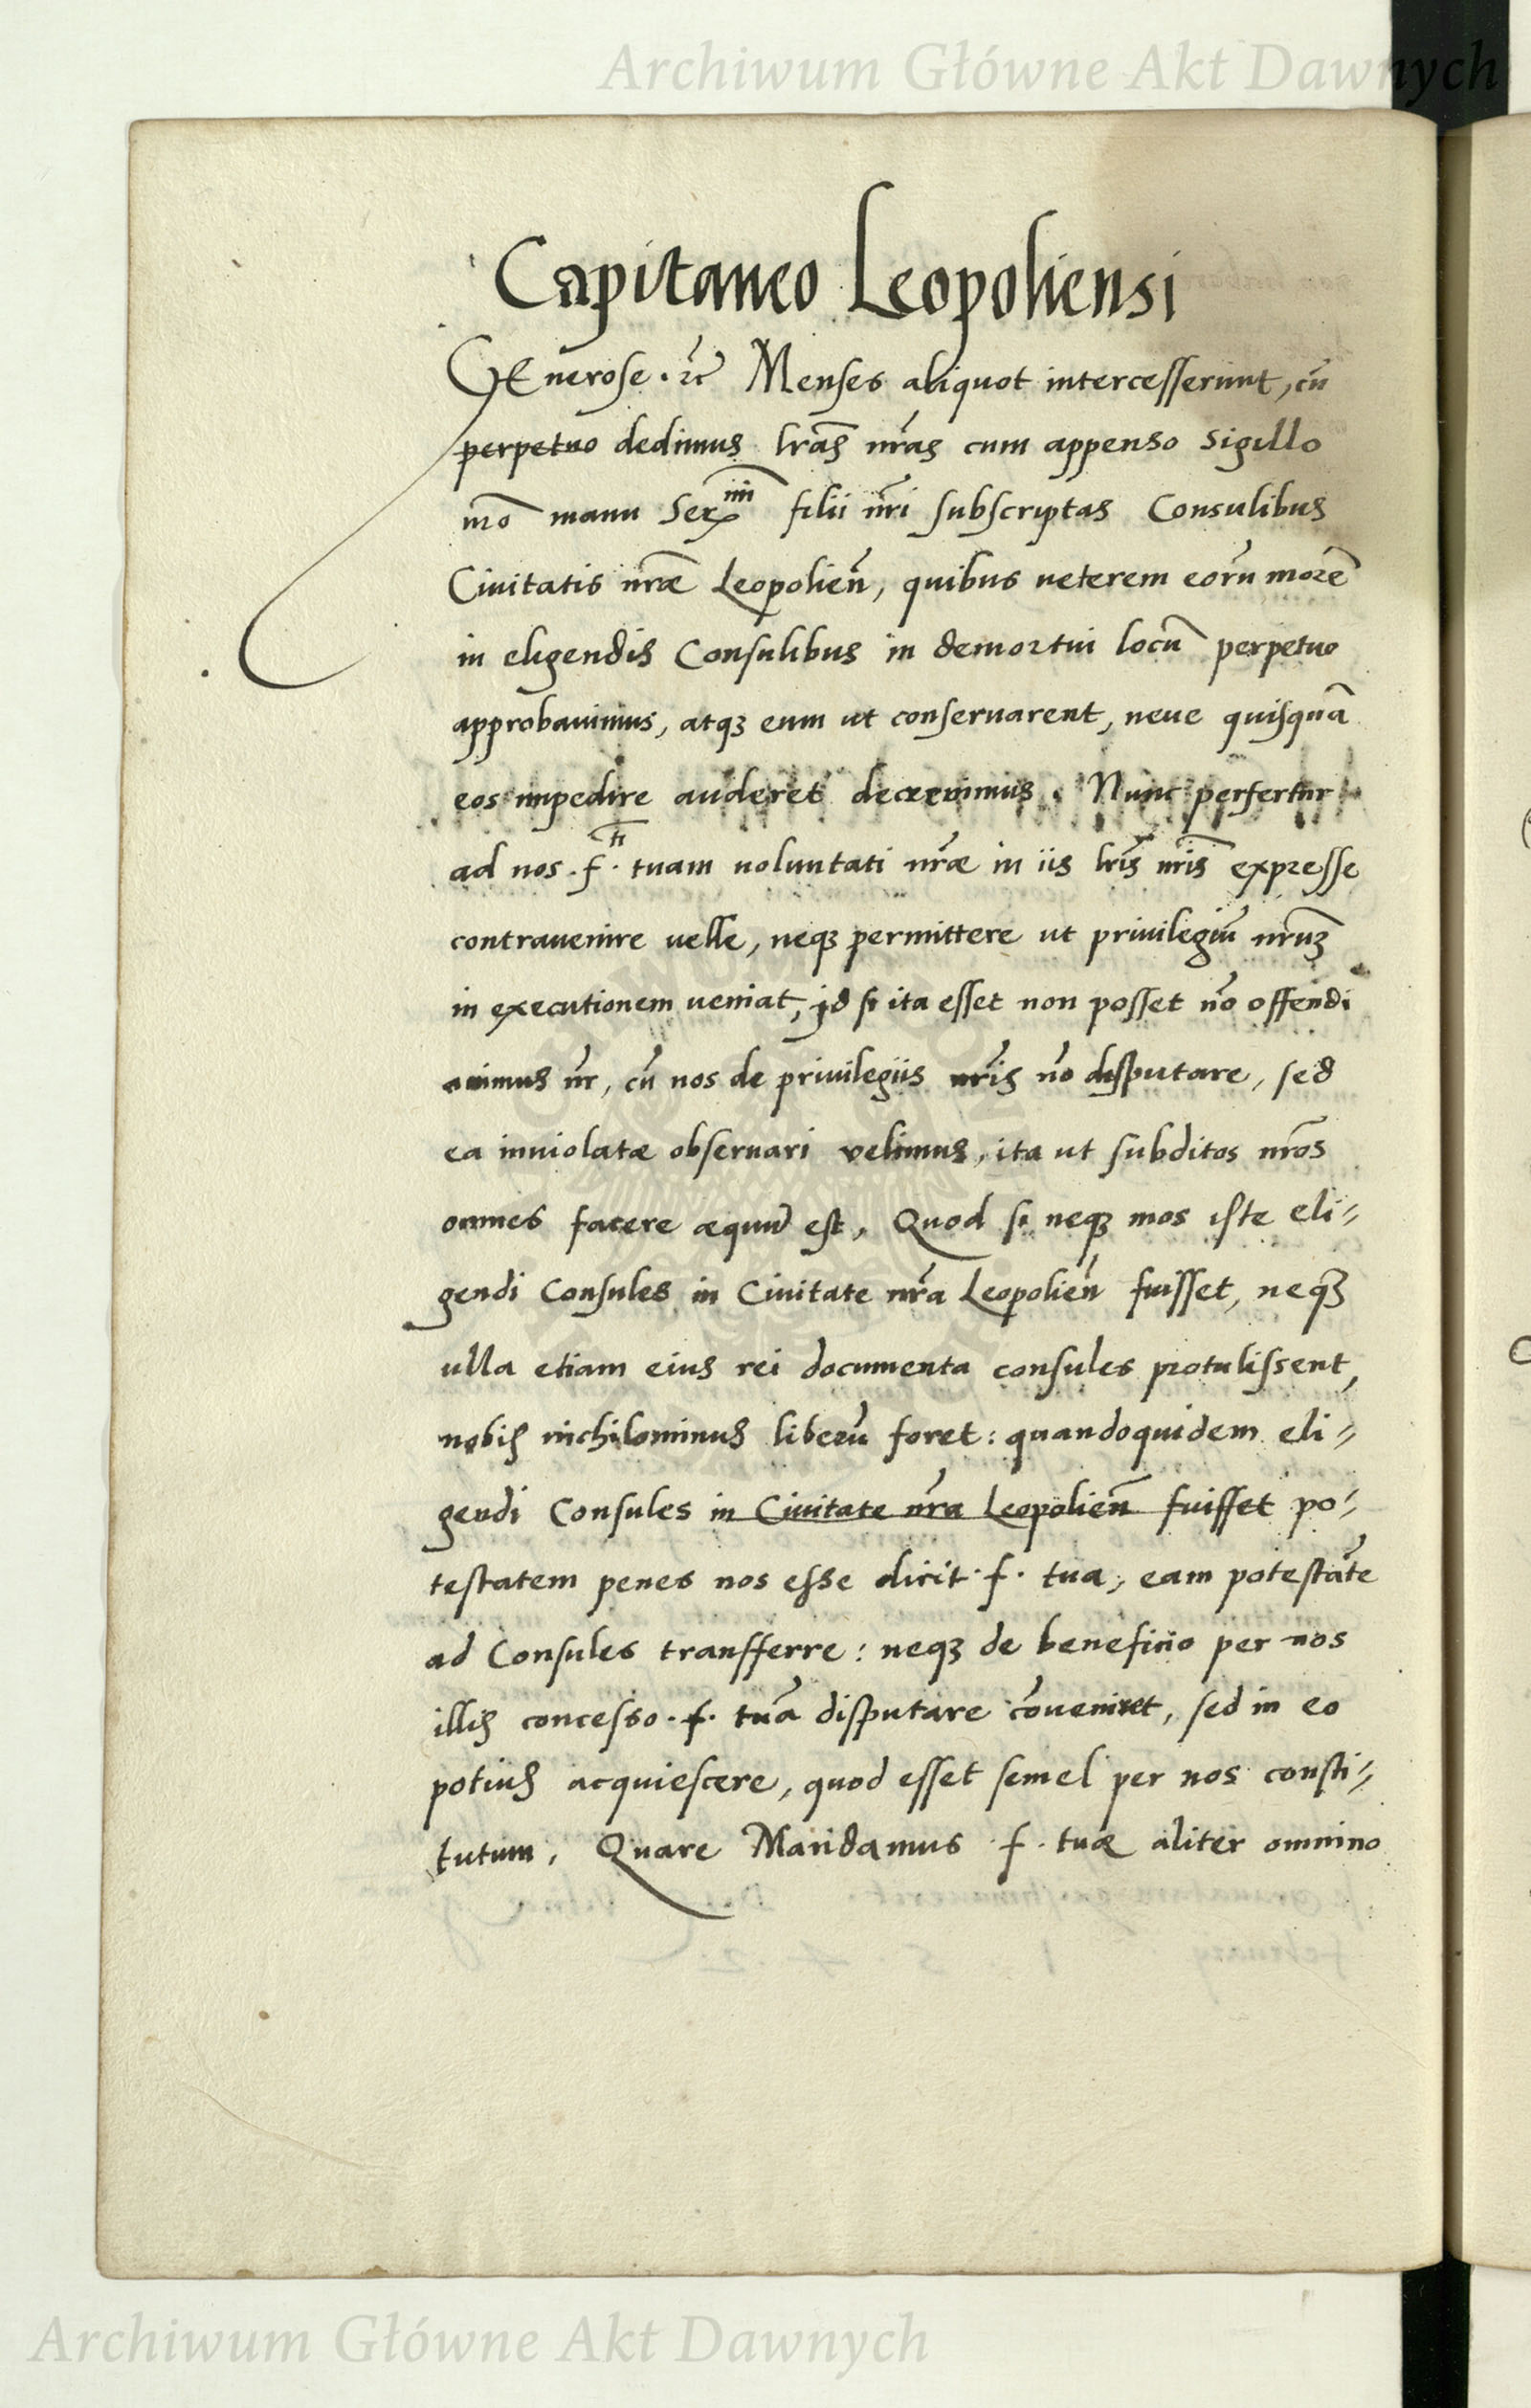 Archiwum Główne Akt Dawnych
Capitaneo Leopoliensi
GEnerose . r̃c Menses aliquot intercesserunt, cũ
perpetuo dedimus lr̃as nr̃as cum appenso sigillo
nr̃o manu Ser^mi filii nr̃i subscriptas Consulibus
Ciuitatis nr̃æ Leopolieñ, quibus ueterem eorũ morẽ
in eligendis Consulibus in demortui locũ perpetuo
approbauimus, atqꝫ eum ut conseruarent, neue quisquã
eos impedire auderet decreuimus. Nunc perfertur
ad nos .f^tt. tuam uoluntati nr̃æ in iis lr̃is nr̃is expresse
contrauenire uelle, neqꝫ permittere ut priuilegiũ nr̃uꝫ
in executionem ueniat, id si ita esset non posset nõ offendi
animus nr̃, cũ nos de priuilegiis nr̃is nõ disputare, sed
ea inuiolatæ obseruari velimus, ita ut subditos nr̃os
omnes facere æquũ est, Quod si neqꝫ mos iste eli-
gendi Consules in Ciuitate nr̃a Leopolieñ fuisset, neqꝫ
ulla etiam eius rei documenta consules protulissent,
nobis nichilominus liberũ foret: quandoquidem eli-
gendi Consules in Ciuitate nr̃a Leopolieñ fuisset po-
testatem penes nos esse dicit .f. tua, eam potestatẽ
ad Consules transfferre: neqꝫ de beneficio per nos
illis concesso .f. tuã disputare cõueniret, sed in eo
potius acquiescere, quod esset semel per nos consti-
tutum, Quare Mandamus .f. tuæ aliter omnino
Archiwum Główne Akt Dawnych